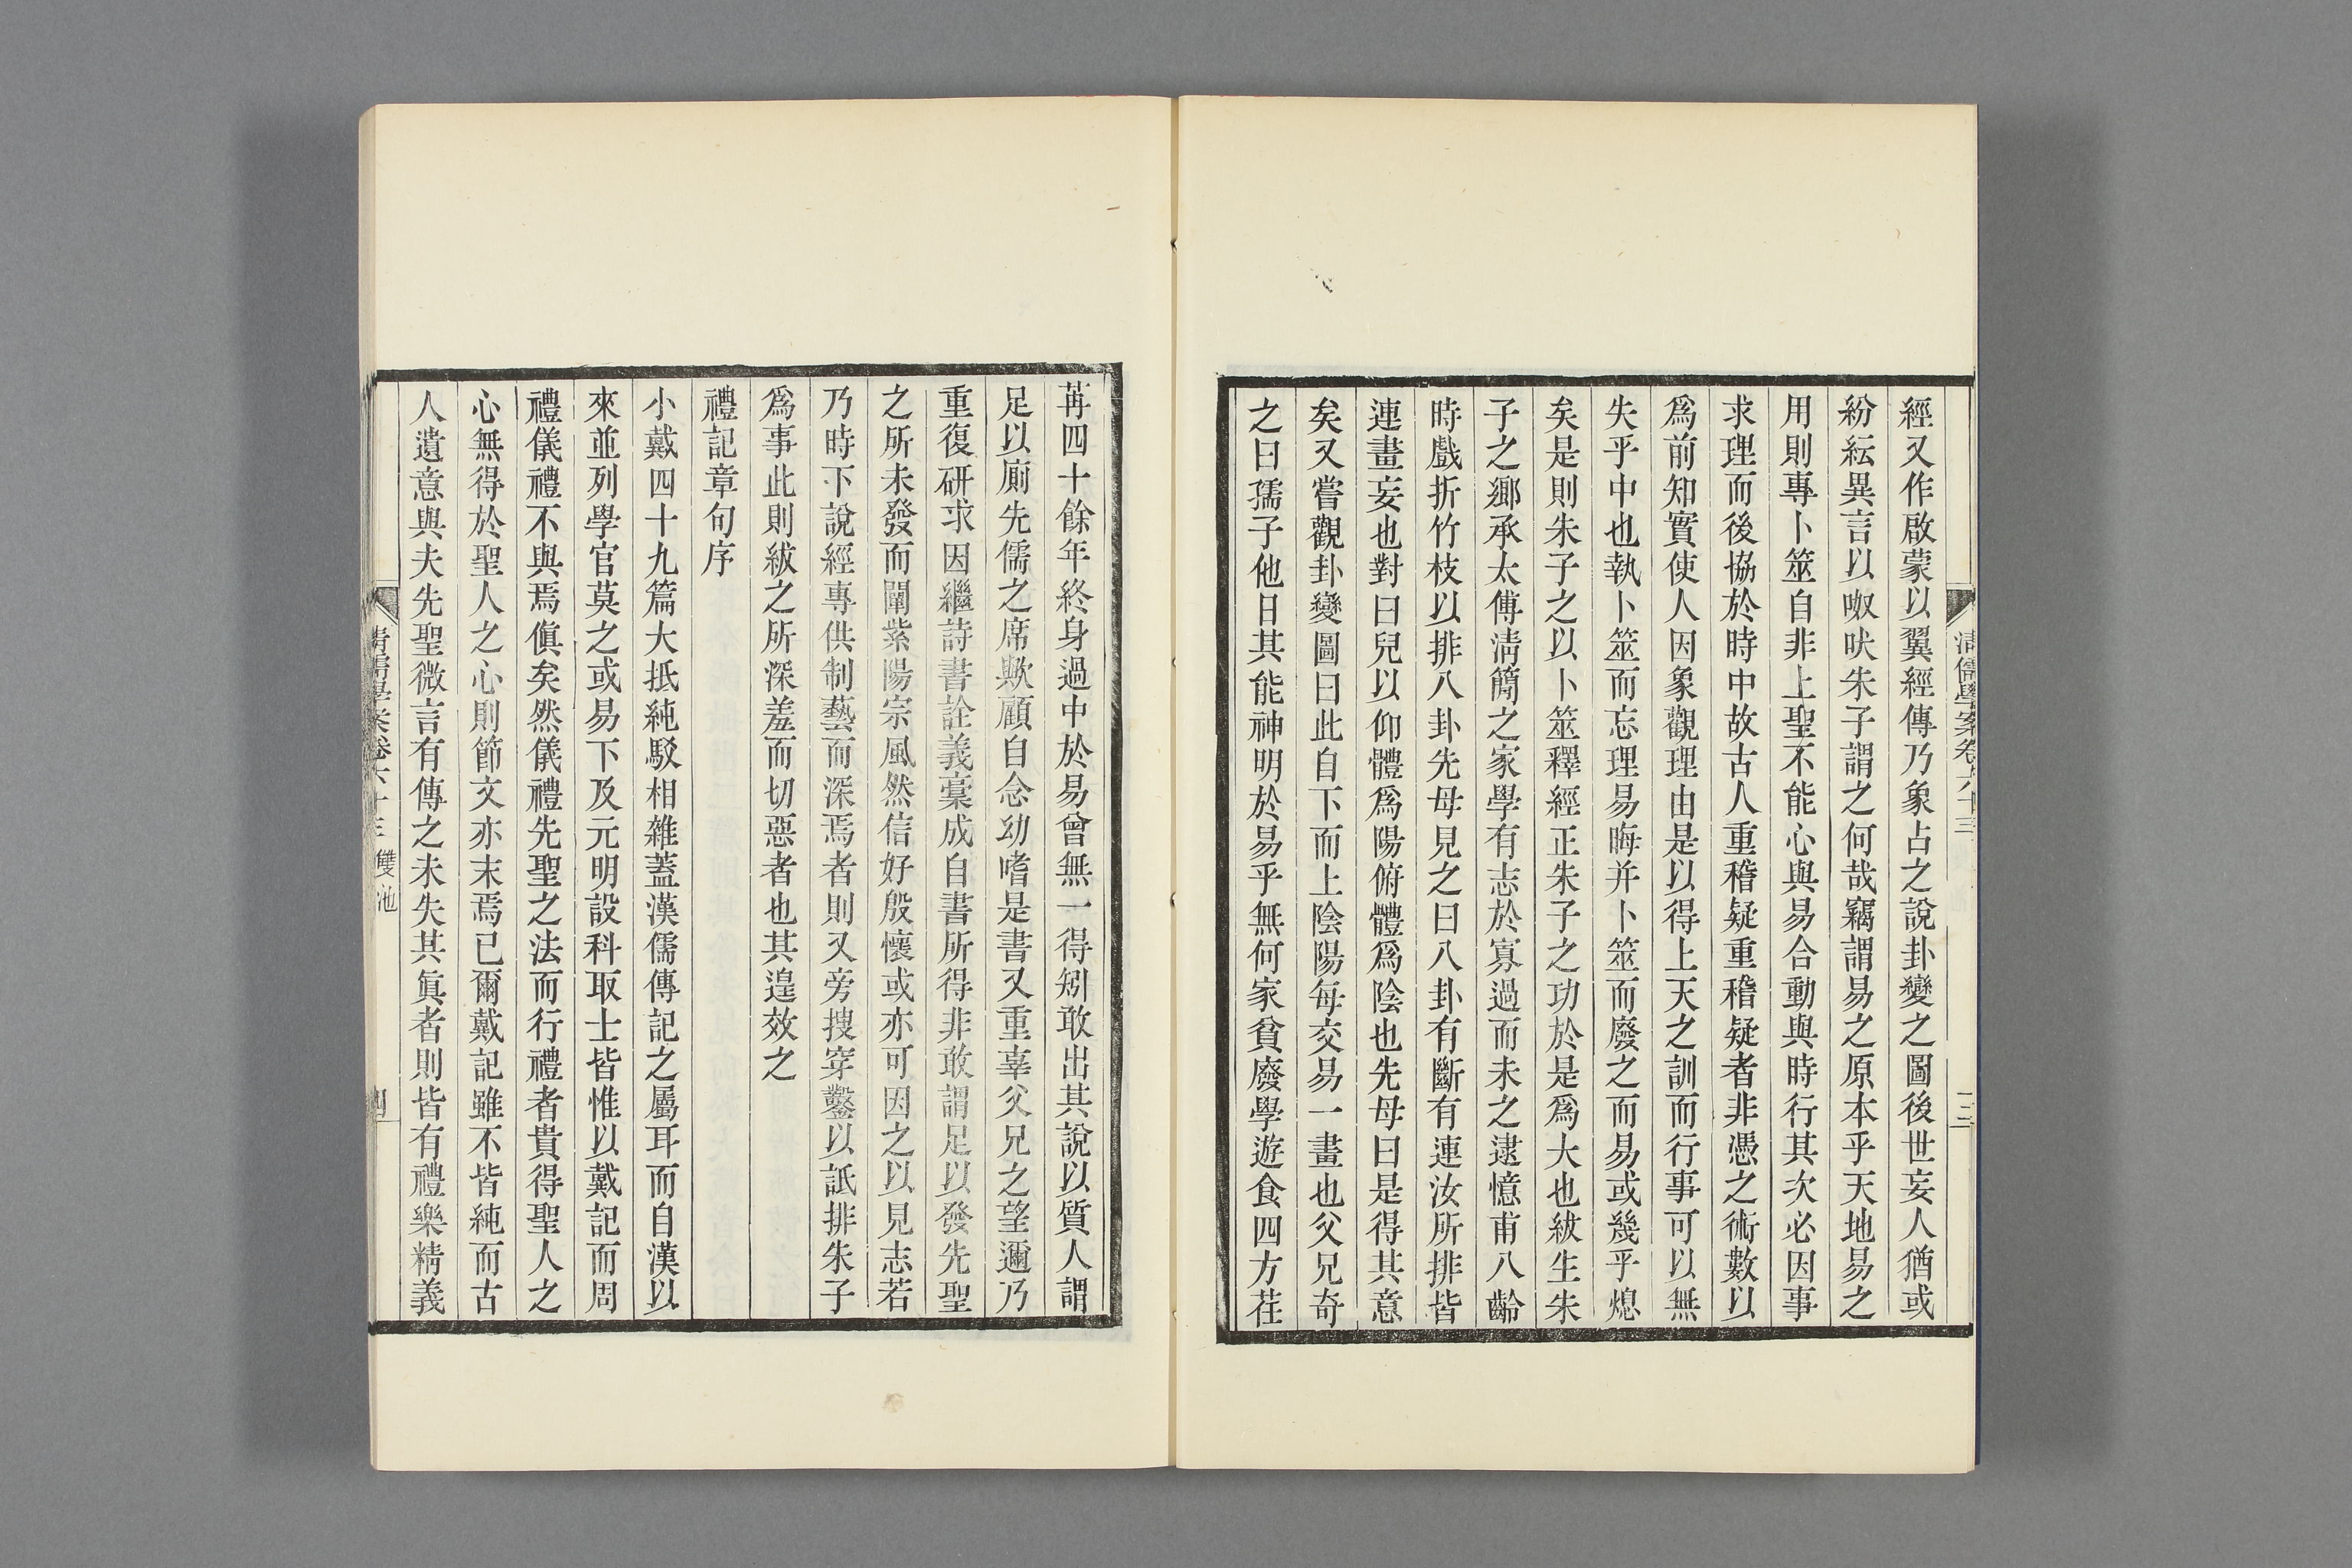 經又作啟蒙以翼經傳乃象占之說卦變之圖後世妄人猶或
紛紜異言以呶吠朱子謂之何哉竊謂易之原本乎天地易之
用則專卜筮自非上聖不能心與易合動與時行其次必因事
求理而後協於時中故古人重稽疑重稽疑者非憑之術數以
爲前知實使人因象觀理由是以得上天之訓而行事可以無
失乎中也執卜筮而忘理易晦并卜筮而廢之而易或幾乎熄
矣是則朱子之以卜筮釋經正朱子之功於是爲大也紱生朱
子之鄉承太傅淸簡之家學有志於寡過而未之逮憶甫八齡
時戲折竹枝以排八卦先母見之曰八卦有斷有連汝所排皆
連畫妄也對曰兒以仰體爲陽俯體爲陰也先母曰是得其意
矣又嘗觀卦變圖曰此自下而上陰陽每交易一畫也父兄奇
之曰孺子他日其能神明於易乎無何家貧廢學遊食四方荏
清儒學案卷六十三
三
苒四十餘年終身過中於易曾無一得矧敢出其說以質人謂
足以廁先儒之席歟顧自念幼嗜是書又重辜父兄之望邇乃
重復研求因繼詩書詮義稾成自書所得非敢謂足以發先聖
之所未發而闡紫陽宗風然信好殷懷或亦可因之以見志若
乃時下說經專供制藝而深焉者則又旁搜穿鑿以詆排朱子
爲事此則紱之所深羞而切惡者也其遑效之
禮記章句序
小戴四十九篇大抵純駁相雜蓋漢儒傳記之屬耳而自漢以
來並列學官莫之或易下及元明設科取士皆惟以戴記而周
禮儀禮不與焉傎矣然儀禮先聖之法而行禮者貴得聖人之
心無得於聖人之心則節文亦末焉已爾戴記雖不皆純而古
人遺意與夫先聖微言有傳之未失其眞者則皆有禮樂精義
清儒學案卷六十三 雙池
四